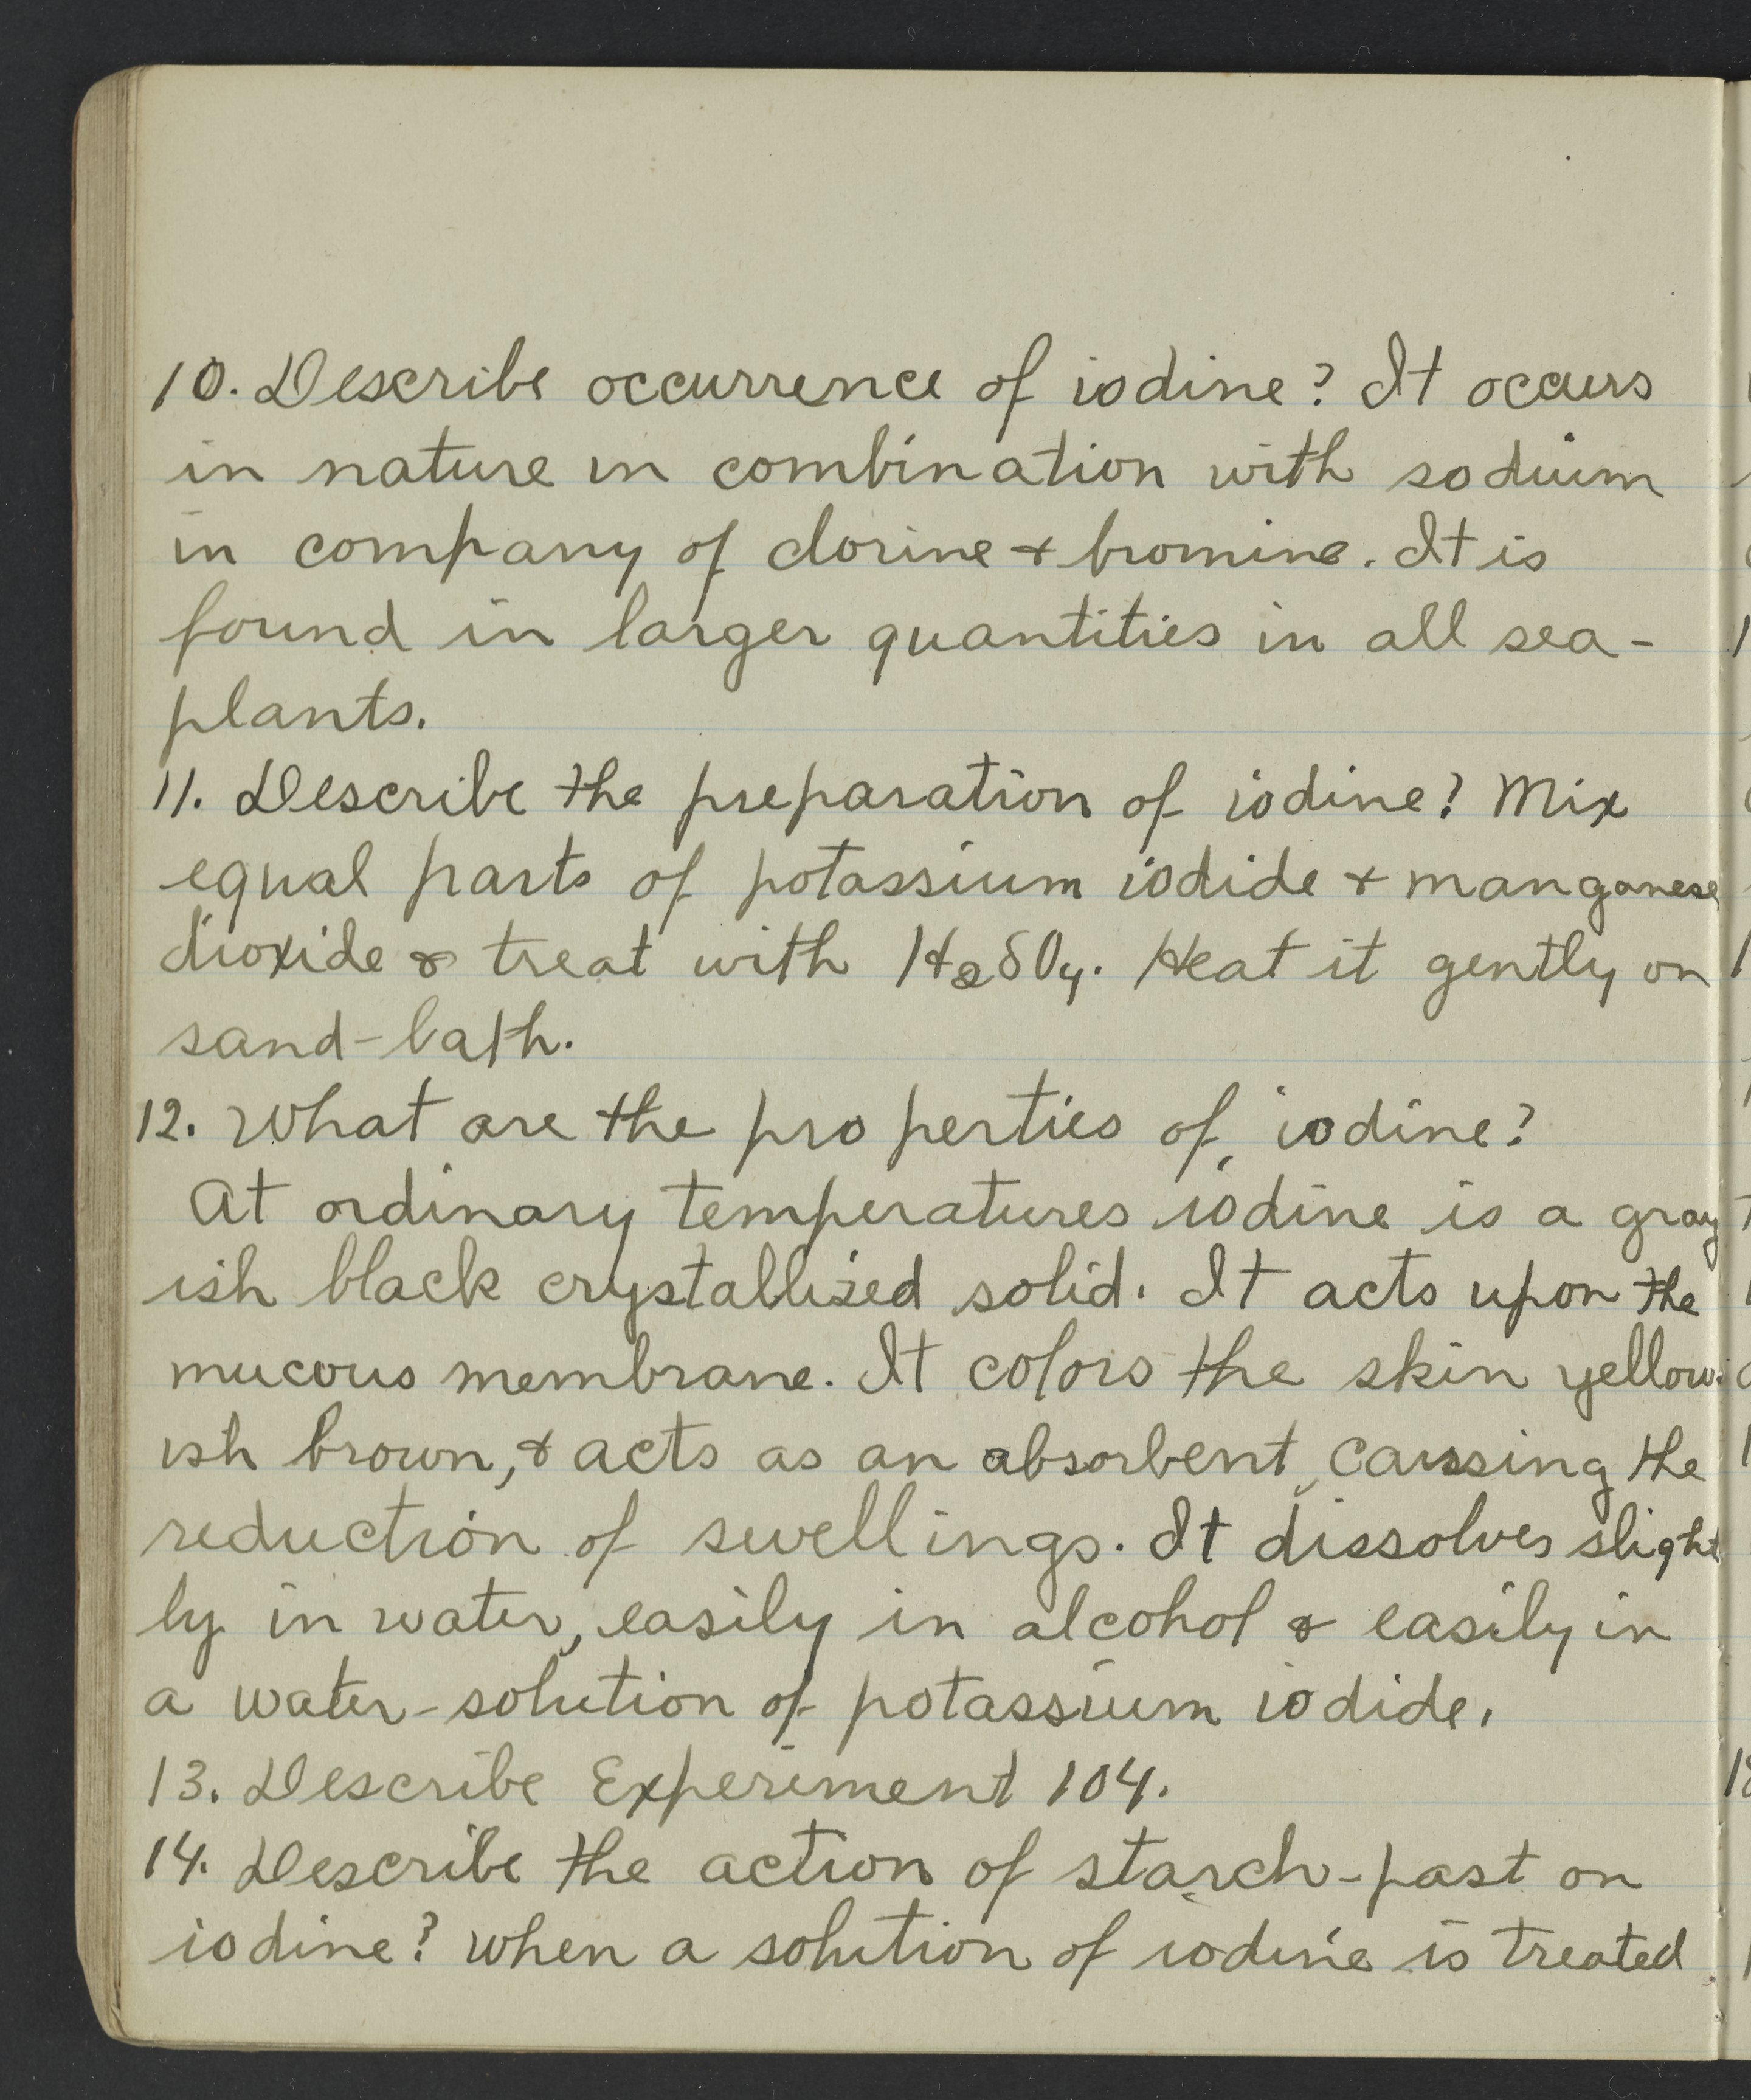 10. Describe occurrence of iodine? It occurs
in nature in combination with sodium
in company of clorine & bromine. It is
found in larger quantities in all sea-
plants.
11. Describe the preparation of iodine? Mix
equal parts of potassium iodide & manganese
dioxide & treat with H2SO4. Heat it gently on
sand-bath.
12. What are the properties of iodine?
At ordinary temperatures iodine is a gray
ish black crystallized solid. It acts upon the
mucous membrane. It colors the skin yellow-
ish brown, & acts as an absorbent, causing the
reduction of swellings. It dissolves slight
ly in water, easily in alcohol & easily in
a water-solution of potassium iodide.
13. Describe Experiment 104.
14. Describe the action of starch-past on
iodine? When a solution of iodine is treated